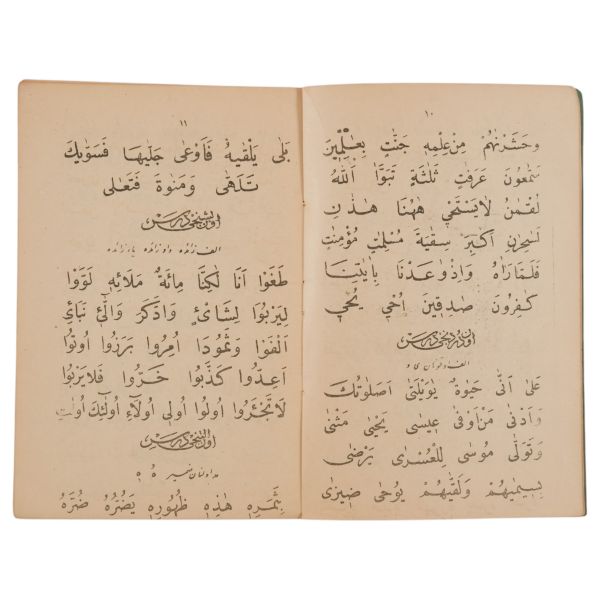 ١٠
وَحَشَرْنٰهُمْ مِنْ عِلْمِهٖ جَنّٰتٍ بِعٰلِمٖينَ
سَمّٰعُونَ عَرَفٰتٍ ثَلٰثَةٍ تَبَوَّا اللّٰهُ
لُقْمٰنُ لَا يَسْتَحْيٖ هٰهُنَا هٰذٰنِ
لَسٰحِرٰنِ اَكٰبِرَ سِقٰيَةَ مُسْلِمٰتٍ مُؤْمِنٰتٍ
فَلَمَّا رَاٰهُ وَاِذْ وٰعَدْنَا بِاٰيٰتِنَا
كٰفِرُونَ صٰدِقٖينَ اُحْيٖ يُحْيٖ
اون دردنجی درس
عَلٰى اَنّٰى حَيٰوةٌ يٰوَيْلَتٰى اَصَلٰوتُكَ
وَاَدْنٰى مَنْ اَوْفٰى عٖيسٰى يَحْيٰى مَثْنٰى
وَتَوَلّٰى مُوسٰى لِلْعُسْرٰى يَرْضٰى
بِسٖيمٰيهُمْ وَلَقّٰيهُمْ يُوحٰى ضٖيزٰى
١١
بَلٰى يَلْقٰيهُ فَاَوْعٰى جَلّٰيهَا فَسَوّٰيكَ
تَلَهّٰى وَمَنٰوةَ فَتَعَالٰى
اون بشنجی درس
الف زائده واو زائده یا زائده
طَغَوْا اَنَا لٰكِنَّا مِائَةٌ مَلَائِهٖ لَوَّوْا
لِيَرْبُوَا لِشَائْءٍ وَادَّكَرَ نَبَائِ
اَلْفَوْا وَثَمُودَا اُمِرُوا بَرَزُوا اُوتُوا
اَعِدُّوا كَذَّبُوا خَرُّوا فَلَا يَرْبُوا
لَا تَجْئَرُوا اُولُوا اُولٖى اُولَاءِ اُولٰئِكَ اُولَاتِ
اون التنجی درس
مد اولنان ضمیر
بِثَمَرِهٖ هٰذِهٖ ظُهُورِهٖ يَضُرُّهُ ضُرَّهُ